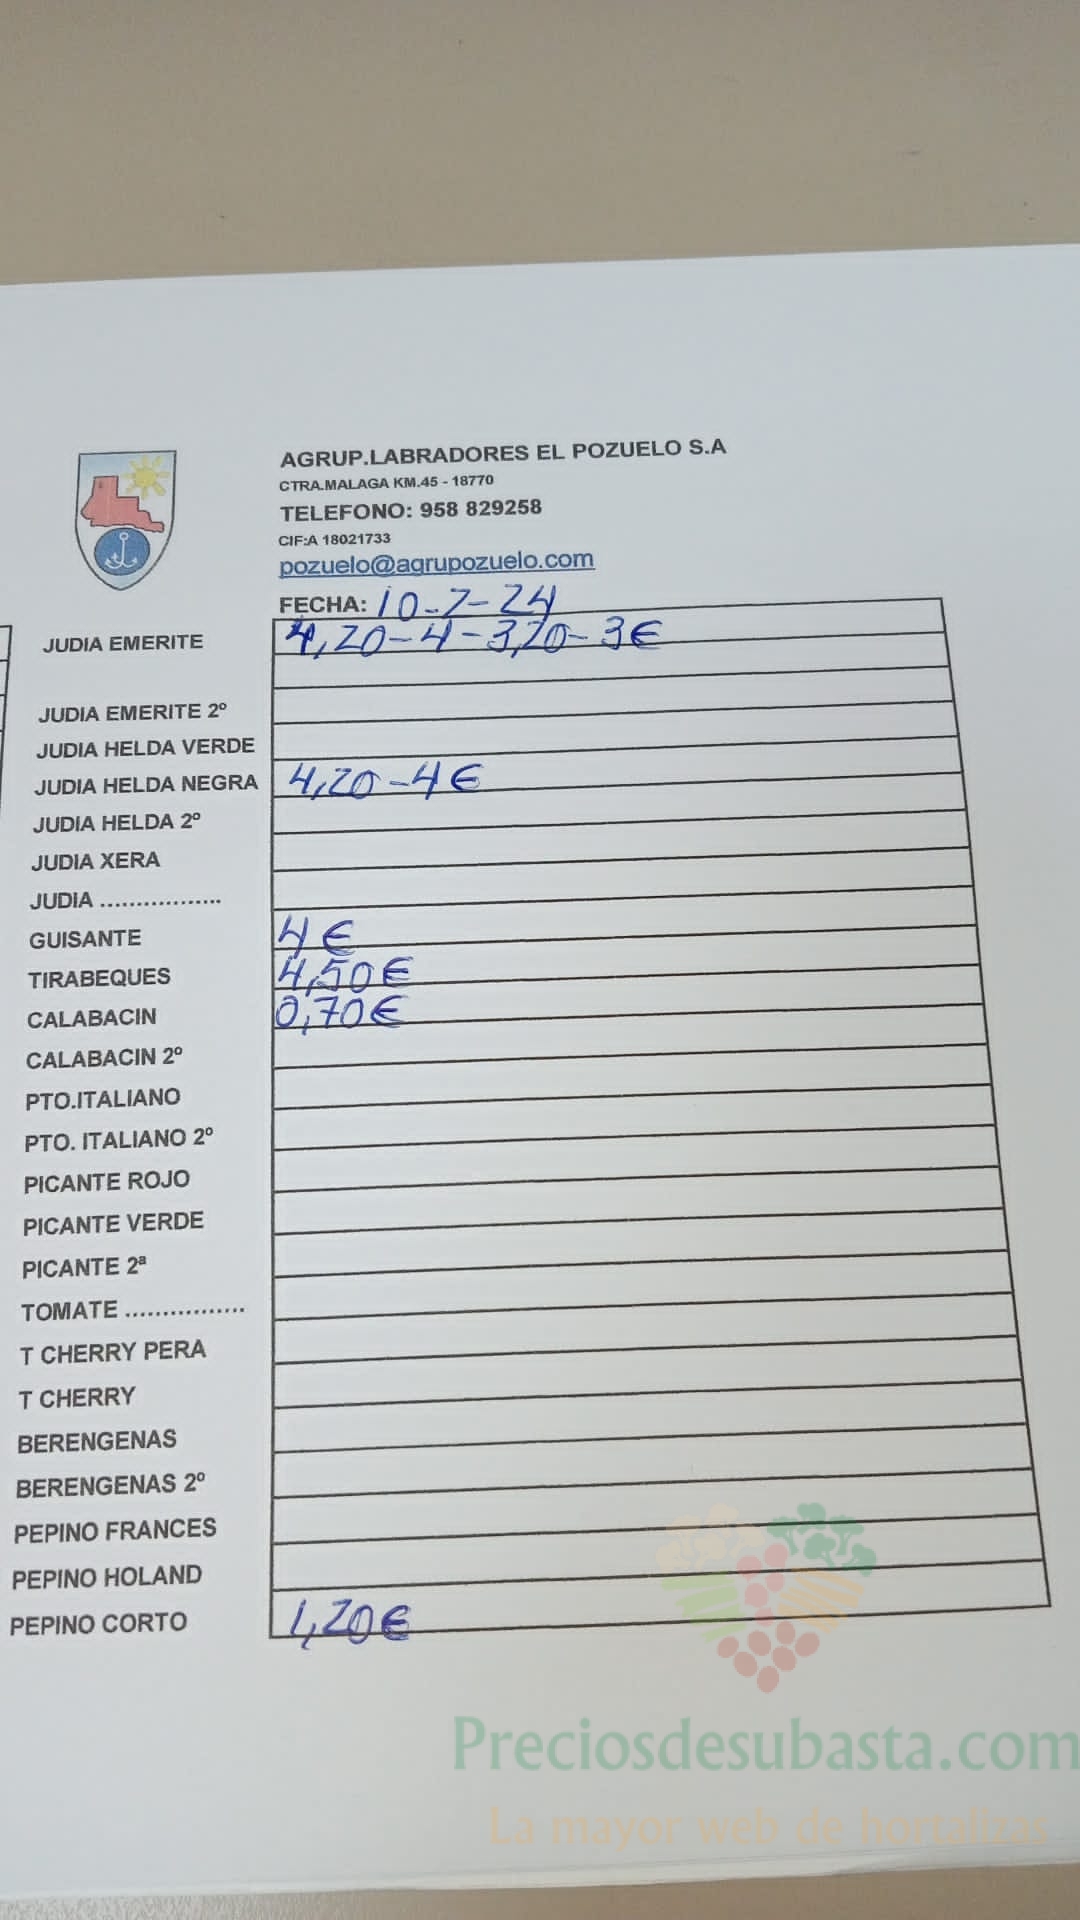 AGRUP.LABRADORES EL POZUELO S.A
CTRA.MALAGA KM.45 - 18770
TELEFONO: 958 829258
CIF:A 18021733
pozuelo@agrupozuelo.com
FECHA: 10-7-24
JUDIA EMERITE 4,20-4-3,20-3€
JUDIA EMERITE 2º
JUDIA HELDA VERDE
JUDIA HELDA NEGRA 4,20-4€
JUDIA HELDA 2º
JUDIA XERA
JUDIA .................
GUISANTE 4€
TIRABEQUES 4,50€
CALABACIN 0,70€
CALABACIN 2º
PTO.ITALIANO
PTO. ITALIANO 2º
PICANTE ROJO
PICANTE VERDE
PICANTE 2ª
TOMATE ................
T CHERRY PERA
T CHERRY
BERENGENAS
BERENGENAS 2º
PEPINO FRANCES
PEPINO HOLAND
PEPINO CORTO 1,20€
Preciosdesubasta.com
La mayor web de hortalizas